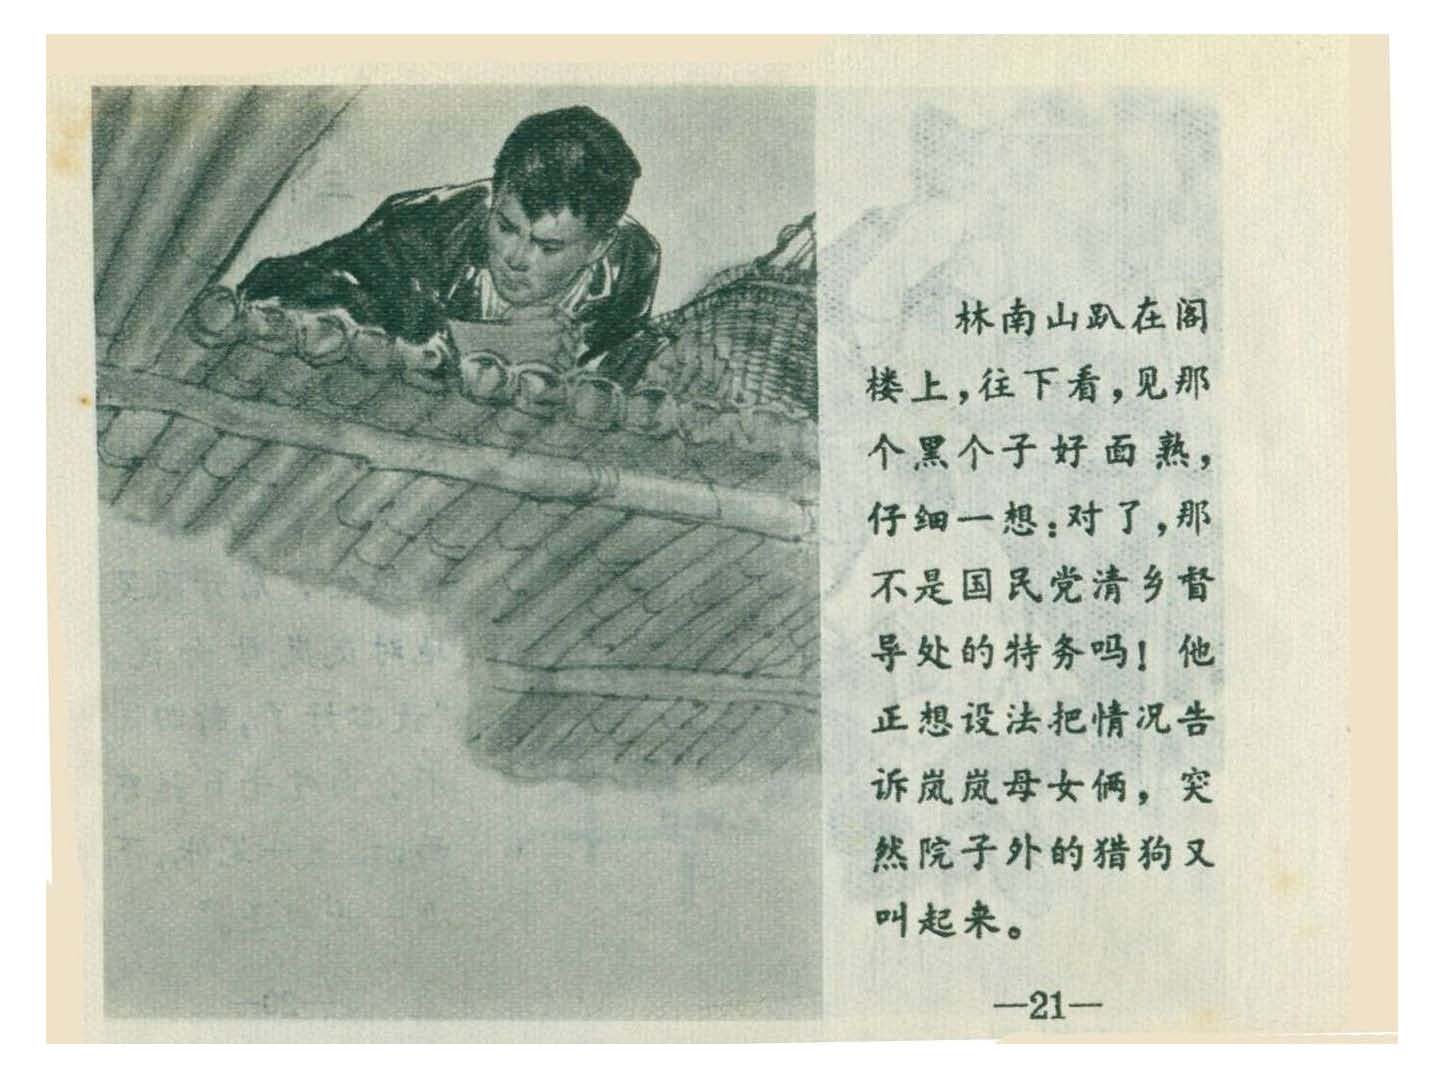 林南山趴在阁
楼上，往下看，见那
个黑个子好面熟，
仔细一想：对了，那
不是国民党清乡督
导处的特务吗！他
正想设法把情况告
诉岚岚母女俩，突
然院子外的猎狗又
叫起来。
—21—